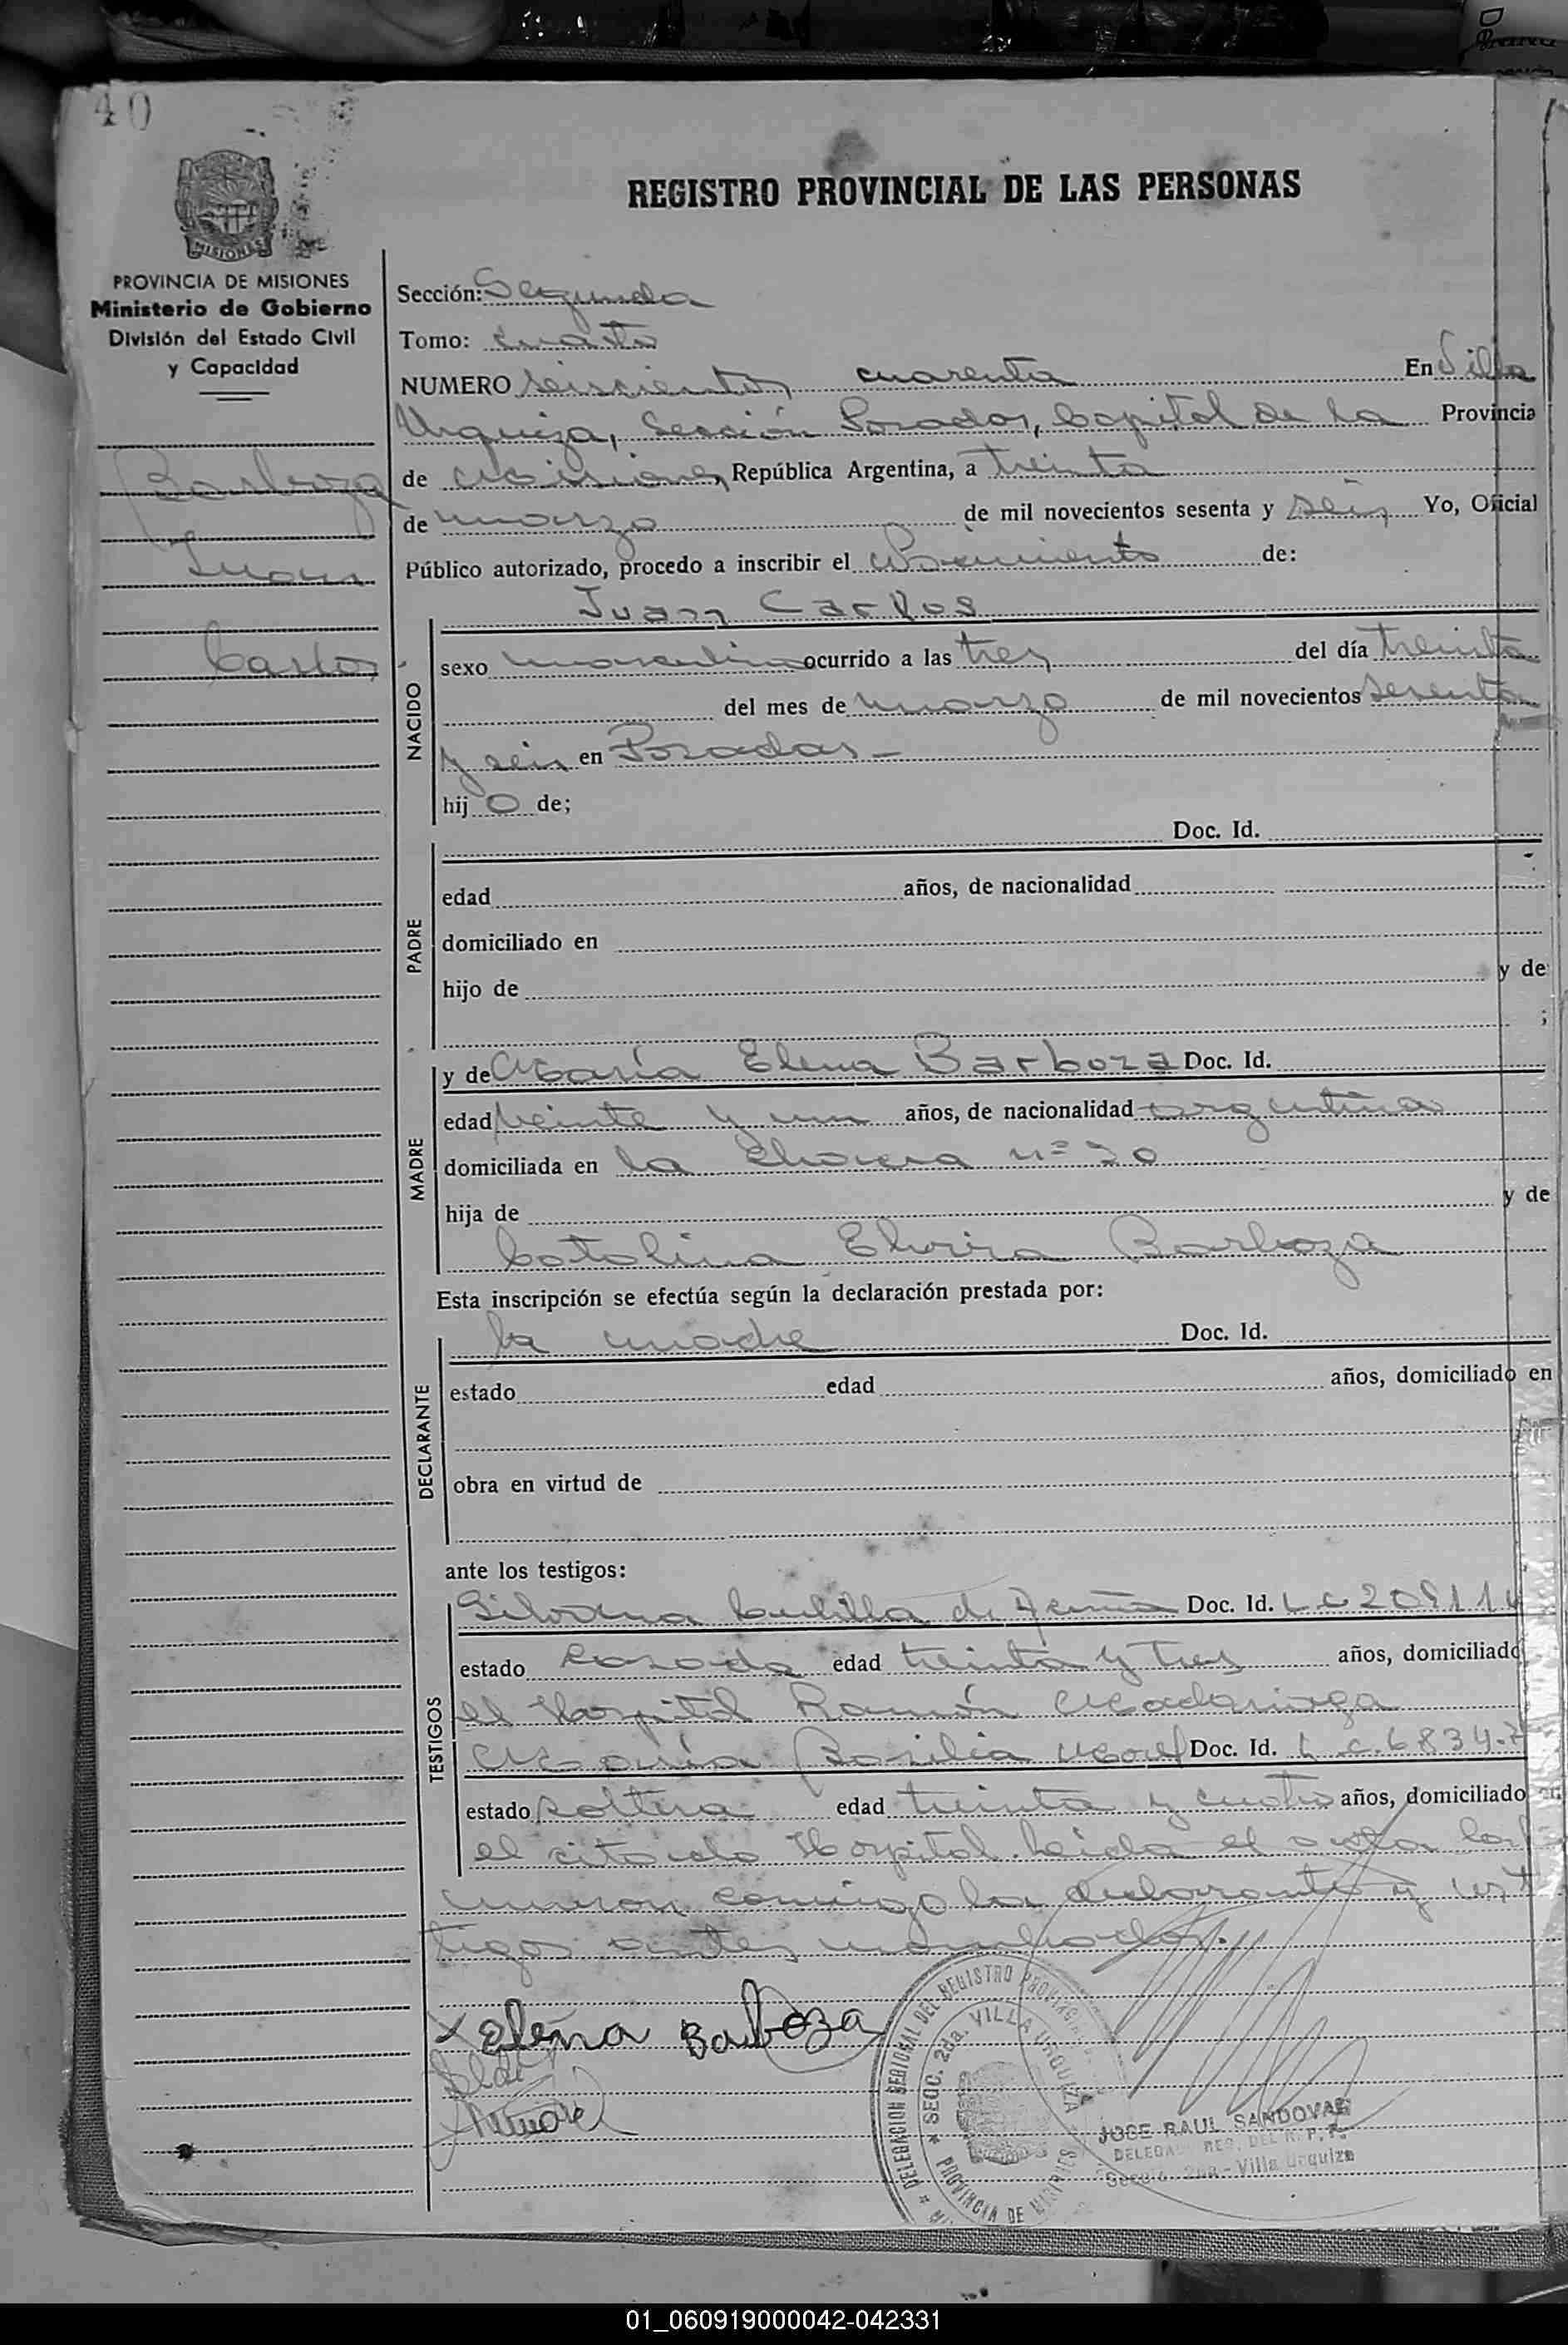 40
MISIONES
PROVINCIA DE MISIONES
Ministerio de Gobierno
División del Estado Civil
y Capacidad
Barboza
Juan
Carlos
REGISTRO PROVINCIAL DE LAS PERSONAS
Sección: Segunda
Tomo: cuarto
NUMERO seiscientos cuarenta En Villa
Urquiza, Sección Posadas, Capital de la Provincia
de Misiones, República Argentina, a treinta
de marzo de mil novecientos sesenta y seis Yo, Oficial
Público autorizado, procedo a inscribir el Nacimiento de:
NACIDO
Juan Carlos
sexo masculino ocurrido a las tres del día treinta
del mes de marzo de mil novecientos sesenta
y seis en Posadas -
hijo de;
PADRE
Doc. Id.
edad años, de nacionalidad
domiciliado en
hijo de y de
;
MADRE
y de María Elena Barboza Doc. Id.
edad veinte y un años, de nacionalidad argentina
domiciliada en la Chacra nº 20
hija de y de
Catalina Elvira Barboza
Esta inscripción se efectúa según la declaración prestada por:
DECLARANTE
la madre Doc. Id.
estado edad años, domiciliado en
obra en virtud de
ante los testigos:
TESTIGOS
Silvana de Acuña Doc. Id. L C 209114
estado casada edad treinta y tres años, domiciliado
el Hospital Ramón Madariaga
María Basilia Doc. Id. L.C. 6.834.7
estado soltera edad treinta y cuatro años, domiciliado en
el citado Hospital. Leída el acta la
conmigo la declarante y tes
tigos antes
x Elena Barboza
DELEGACION REGIONAL DEL REGISTRO PROVINCIAL
SECC. 2da. VILLA URQUIZA
PROVINCIA DE MISIONES
JOSE RAUL SANDOVAL
DELEGA REG. DEL R. P. P.
2da - Villa Urquiza
01_060919000042-042331